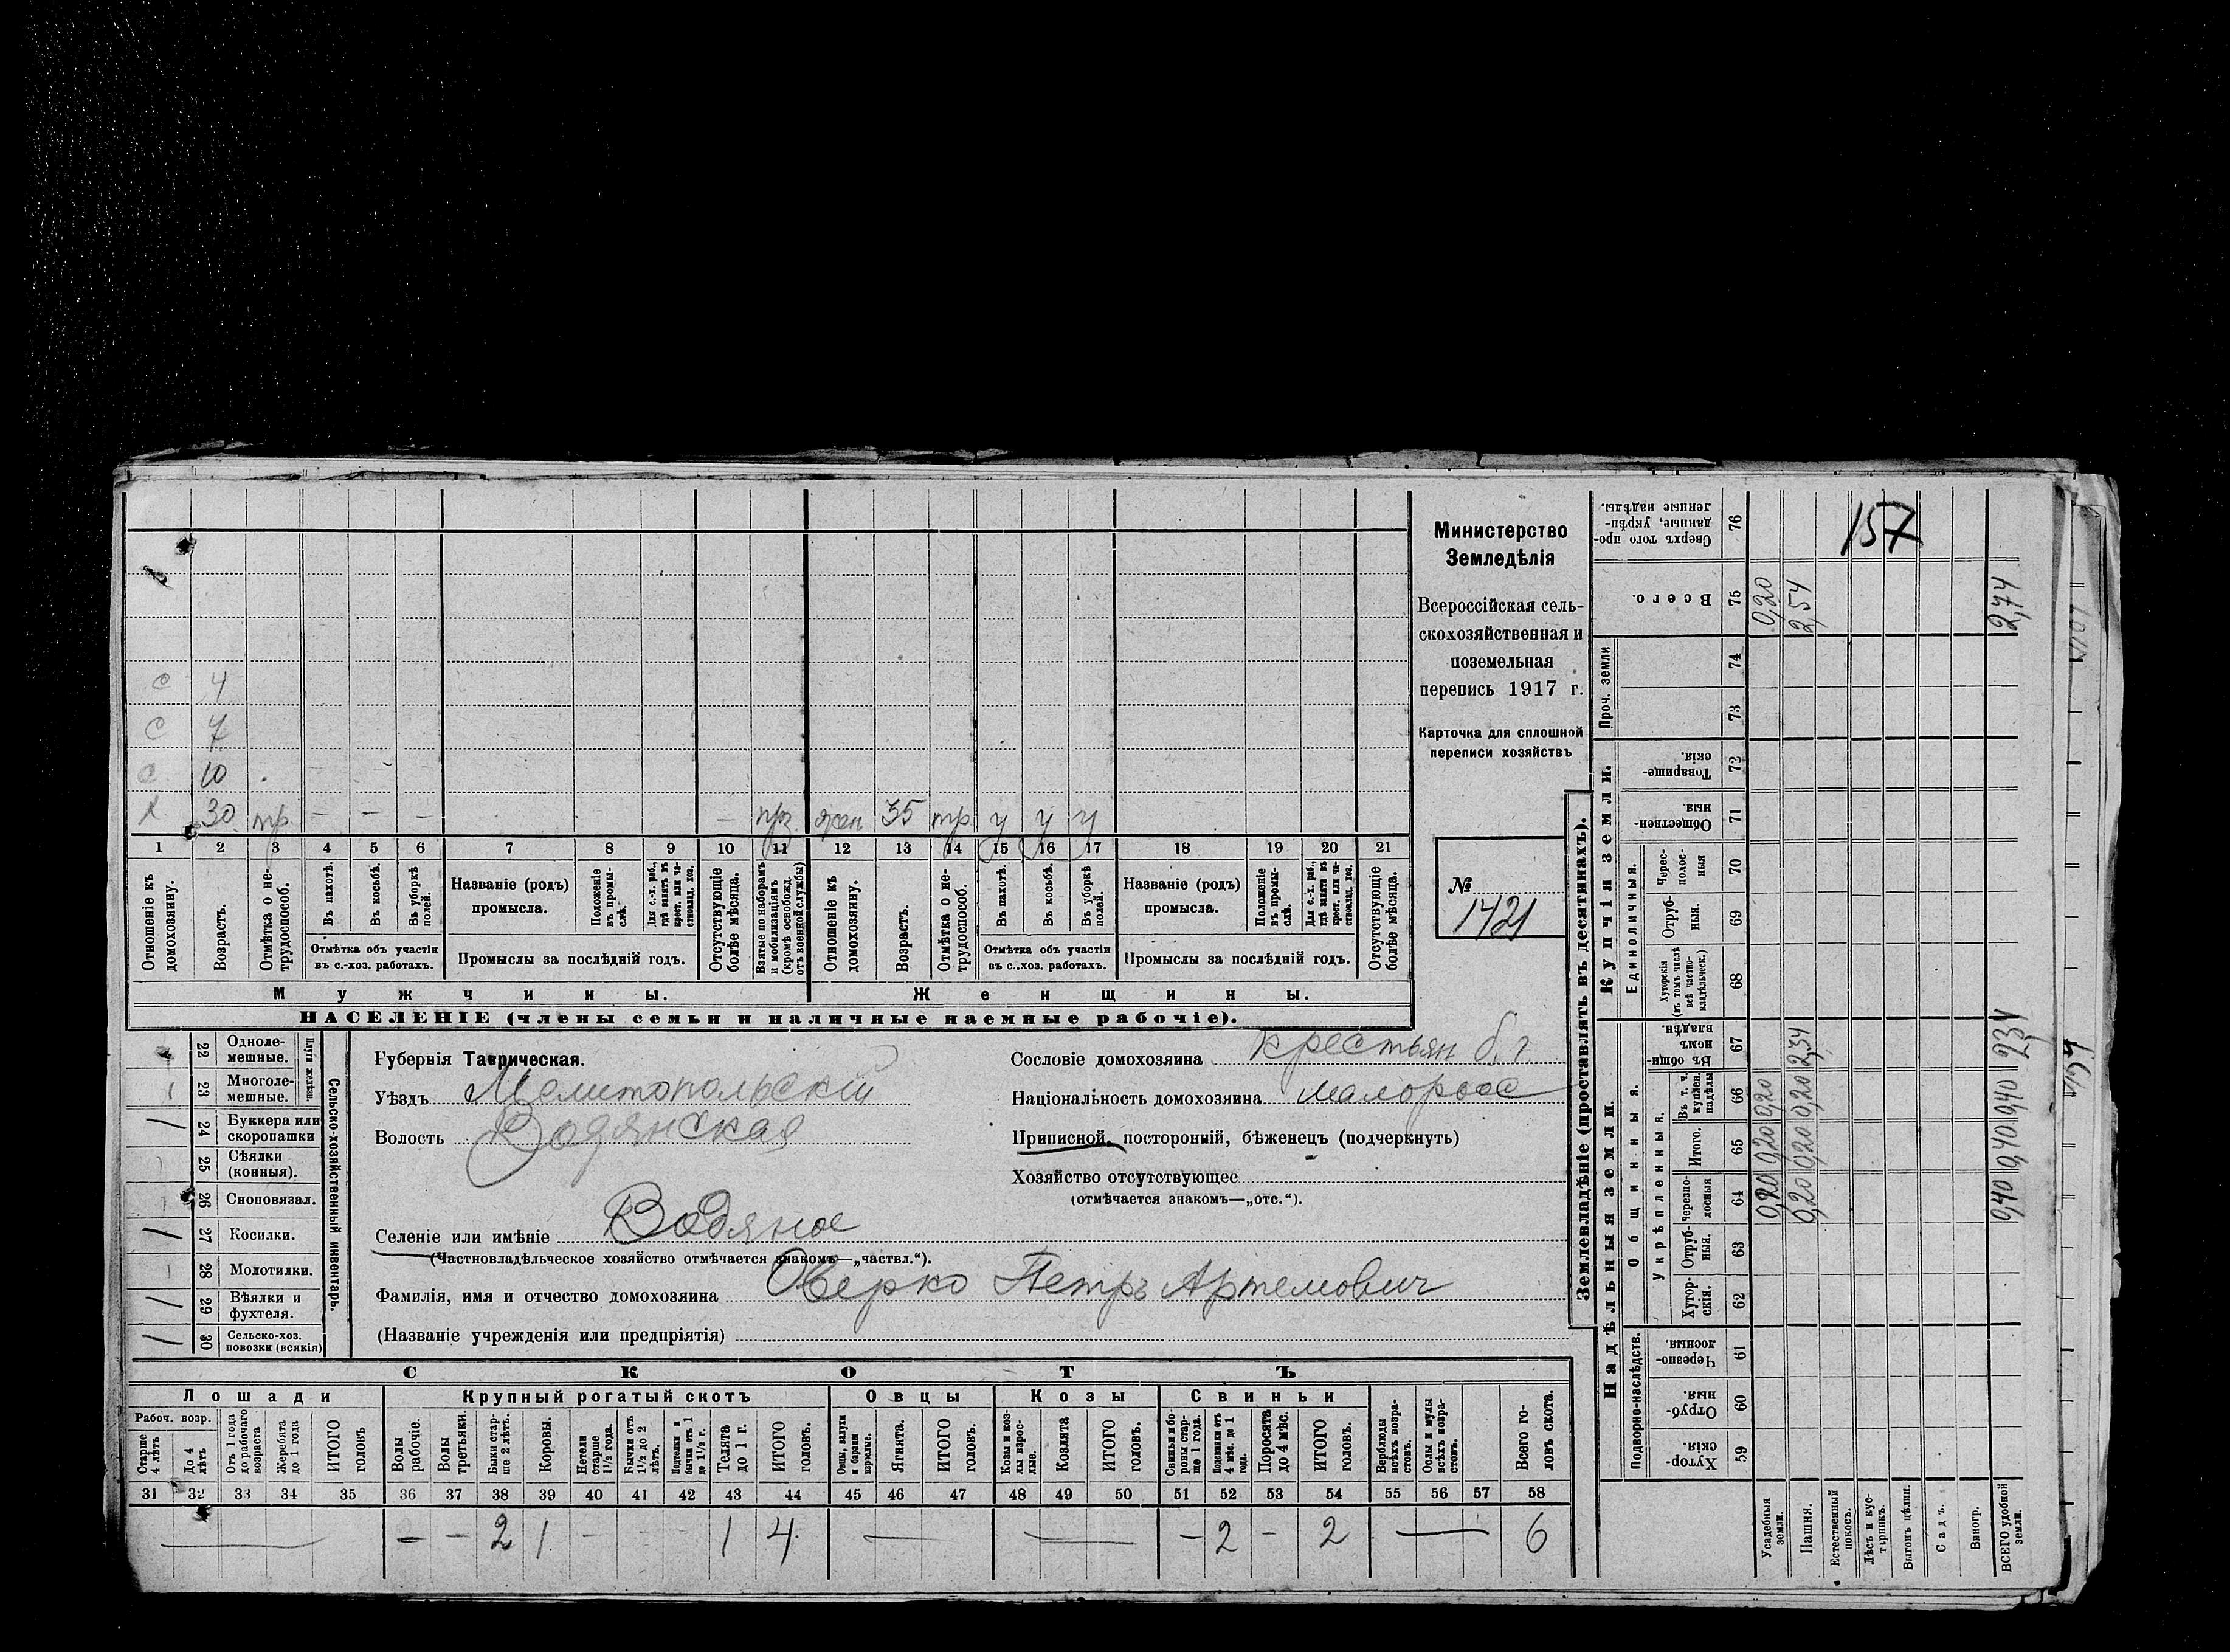 157
Министерство
Земледѣлія
Всероссійская сель-
скохозяйственная и
поземельная
перепись 1917 г.
Карточка для сплошной
переписи хозяйствъ
№
1421
с 4
с 7
с 10
х 30 тр – – – – прз жен 35 тр у у у
1 2 3 4 5 6 7 8 9 10 11 12 13 14 15 16 17 18 19 20 21
Отношеніе къ домохозяину.
Возрастъ.
Отмѣтка о не-трудоспособ.
Въ пахотѣ.
Въ косьбѣ.
Въ уборкѣ полей.
Отмѣтка объ участіи
въ с.-хоз. работахъ.
Названіе (родъ)
промысла.
Положеніе въ промы-слѣ.
Для с.-х. раб., гдѣ занятъ въ крест. или ча-стновлад. хоз.
Промыслы за послѣдній годъ.
Отсутствующіе болѣе мѣсяца.
Взятые по наборамъ и мобилизаціямъ (кромѣ освобожд. отъ военной службы)
Отношеніе къ домохозяину.
Возрастъ.
Отмѣтка о не-трудоспособ.
Въ пахотѣ.
Въ косьбѣ.
Въ уборкѣ полей.
Отмѣтка объ участіи
въ с.-хоз. работахъ.
Названіе (родъ)
промысла.
Положеніе въ промы-слѣ.
Для с.-х. раб., гдѣ занятъ въ крест. или ча-стновлад. хоз.
Промыслы за послѣдній годъ.
Отсутствующіе болѣе мѣсяца.
Мужчины. Женщины.
НАСЕЛЕНІЕ (члены семьи и наличные наемные рабочіе).
22 Одноле-мешные.
23 Многоле-мешные.
Плуги желѣзн.
24 Буккера или скоропашки
25 Сѣялки (конныя).
26 Сноповязал.
27 Косилки.
28 Молотилки.
29 Вѣялки и фухтеля.
30 Сельско-хоз. повозки (всякія)
Сельско-хозяйственный инвентарь.
Губернія Таврическая.
Уѣздъ Мелитопольскій
Волость Водянская
Селеніе или имѣніе Водяное
(Частновладѣльческое хозяйство отмѣчается знакомъ—„частвл.“).
Фамилія, имя и отчество домохозяина Оверко Петръ Артемович
(Названіе учрежденія или предпріятія)
Сословіе домохозяина крестьян б. г.
Національность домохозяина малоросс
Приписной, посторонній, бѣженецъ (подчеркнуть)
Хозяйство отсутствующее
(отмѣчается знакомъ—„отс.“).
СКОТЪ
Лошади Крупный рогатый скотъ Овцы Козы Свиньи
Рабоч. возр.
Старше 4 лѣтъ
До 4 лѣтъ
Отъ 1 года до рабочаго возраста
Жеребята до 1 года
ИТОГО головъ
Волы рабочіе.
Волы третьяки.
Быки стар-ше 2 лѣтъ.
Коровы.
Нетели старше 1½ года.
Бычки отъ 1½ до 2 лѣтъ.
Подтелки и бычки отъ 1 до 1½ г.
Телята до 1 г.
ИТОГО головъ.
Овцы, валухи и бараны взрослые.
Ягнята.
ИТОГО головъ.
Козы и коз-лы взрос-лые.
Козлята
ИТОГО головъ.
Свиньи и бо-ровы стар-ше 1 года.
Подсвинки отъ 4 мѣс. до 1 года.
Поросята до 4 мѣс.
ИТОГО головъ.
Верблюды всѣхъ возра-стовъ.
Ослы и мулы всѣхъ возра-стовъ.
Всего го-ловъ скота.
31 32 33 34 35 36 37 38 39 40 41 42 43 44 45 46 47 48 49 50 51 52 53 54 55 56 57 58
— – – 2 1 – – – 1 4 — — – 2 – 2 — 6
Землевладѣніе (проставлять въ десятинахъ).
Надѣльныя земли
Купчія земли.
Проч. земли
Подворно-наслѣдств.
Общинныя.
Укрѣпленныя.
Единоличныя.
Хутор-скія. 59
Отруб-ныя 60
Черезпо-лосныя 61
Хутор-скія. 62
Отруб-ныя. 63
Черезпо-лосныя 64
Итого. 65
Въ т. ч. куплен. надѣлы 66
Въ общин-номъ владѣн. 67
Хуторскія (въ томъ числѣ всѣ частно-владѣльческ.) 68
Отруб-ныя. 69
Черес-полос-ныя 70
Обществен-ныя. 71
Товарище-скія. 72
73
74
Всего. 75
Сверхъ того про-данные, укрѣп-ленные надѣлы. 76
Усадебныя земли. 0,20 0,20 0,20 0,20
Пашня. 0,20 0,20 0,20 2,34 2,54
Естественный покосъ.
Лѣсъ и кус-тарникъ.
Выгонъ цѣлин.
Садъ.
Виногр.
ВСЕГО удобной земли. 0,40 0,40 0,40 2,34 2,74